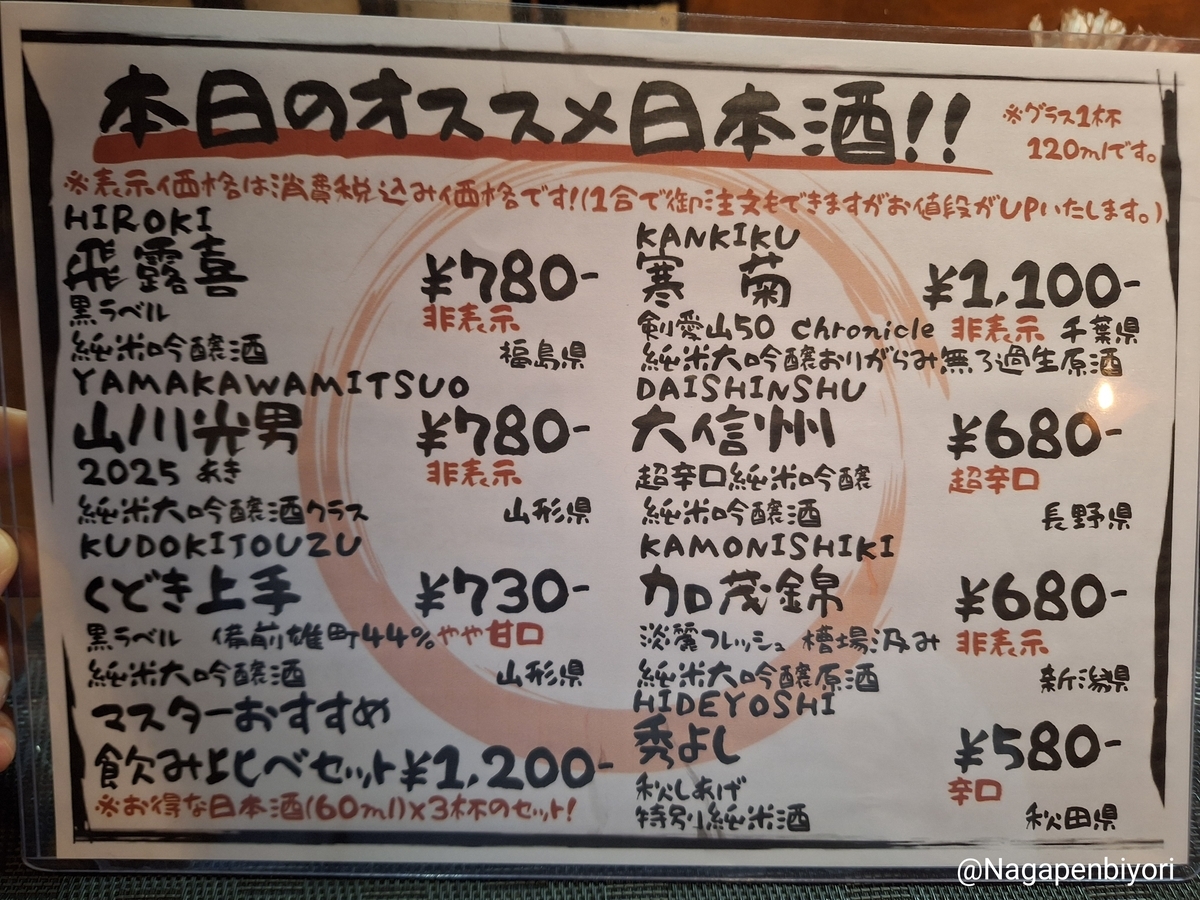 本日のオススメ日本酒!!
※グラス1杯
120mlです。
※表示価格は消費税込み価格です!(1合で御注文もできますがお値段がUPいたします。)
HIROKI
飛露喜 ¥780-
黒ラベル 非表示
純米吟醸酒 福島県
YAMAKAWAMITSUO
山川光男 ¥780-
2025 あき 非表示
純米大吟醸酒クラス 山形県
KUDOKIJOUZU
くどき上手 ¥730-
黒ラベル 備前雄町44% やや甘口
純米大吟醸酒 山形県
マスターおすすめ
飲み比べセット¥1,200-
※お得な日本酒(60ml)×3杯のセット!
KANKIKU
寒菊 ¥1,100-
剣愛山50 Chronicle 非表示 千葉県
純米大吟醸おりがらみ無ろ過生原酒
DAISHINSHU
大信州 ¥680-
超辛口純米吟醸 超辛口
純米吟醸酒 長野県
KAMONISHIKI
加茂錦 ¥680-
淡麗フレッシュ 槽場汲み 非表示
純米大吟醸原酒 新潟県
HIDEYOSHI
秀よし ¥580-
秋しあげ 辛口
特別純米酒 秋田県
@Nagapenbiyori